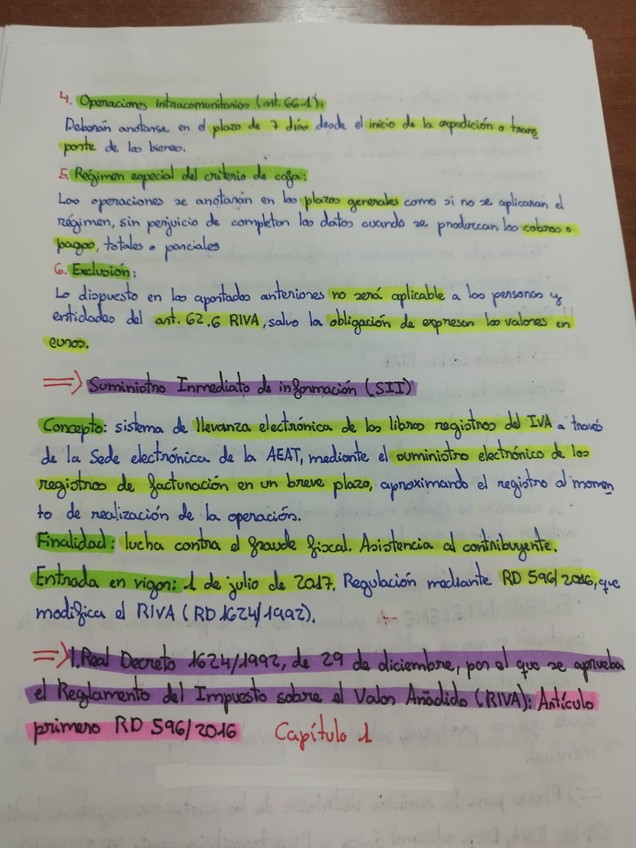 4. Operaciones intracomunitarios (art. 66.1):
Deberán anotarse en el plazo de 7 días desde el inicio de la expedición o trans
porte de los bienes.
5. Régimen especial del criterio de caja:
Las operaciones se anotarán en los plazos generales como si no se aplicaran el
régimen, sin perjuicio de completar los datos cuando se produzcan los cobros o
pagos, totales o parciales
6. Exclusión:
Lo dispuesto en los apartados anteriores no será aplicable a las personas y
entidades del art. 62.6 RIVA, salvo la obligación de expresar los valores en
euros.
=> Suministro Inmediato de información (SII)
Concepto: sistema de llevanza electrónica de los libros registros del IVA a través
de la Sede electrónica de la AEAT, mediante el suministro electrónico de los
registros de facturación en un breve plazo, aproximando el registro al momen
to de realización de la operación.
Finalidad: lucha contra el fraude fiscal. Asistencia al contribuyente.
Entrada en vigor: 1 de julio de 2017. Regulación mediante RD 596/2016, que
modifica el RIVA (RD 1624/1992).
=> 1. Real Decreto 1624/1992, de 29 de diciembre, por el que se aprueba
el Reglamento del Impuesto sobre el Valor Añadido (RIVA): Artículo
primero RD 596/2016 Capítulo 1